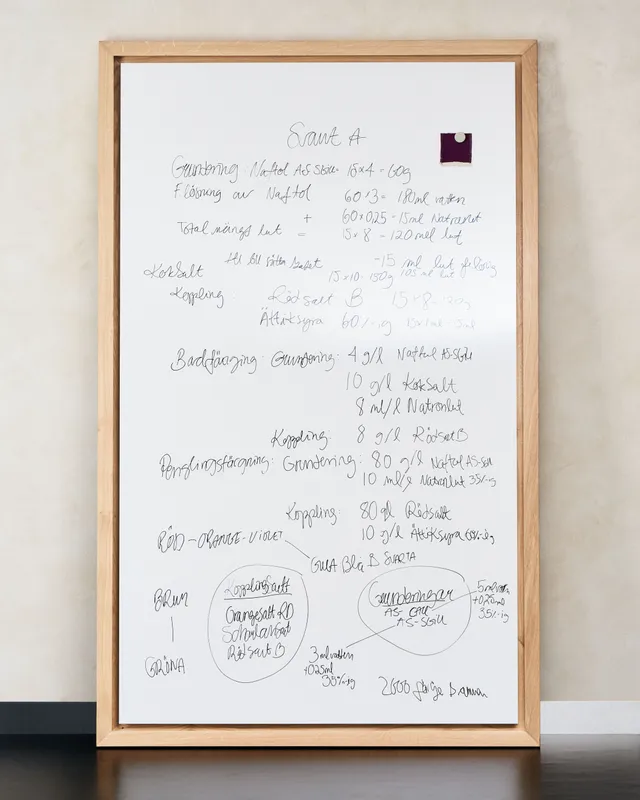 Svart A
Grundering Naftol AS-SGLL 15x4 = 60g
lösning av Naftol 60x3 = 180ml vatten
+ 60x0,25 = 15ml Natronlut
Total mängd lut = 15x8 = 120ml lut
-15 ml lut
KokSalt 15x10 = 150g 105 ml lut
Koppling: Rödsalt B 15x8 =
Ättiksyra 60%-ig
Badfärgning: Grundering: 4 g/l Naftol AS-SGLL
10 g/l KokSalt
8 ml/l Natronlut
Koppling: 8 g/l Rödsalt B
Penslingsfärgning: Grundering: 80 g/l Naftol AS-SGLL
10 ml/l Natronlut 35%-ig
Koppling: 80 g/l Rödsalt
10 g/l Ättiksyra 60%-ig
RÖD-ORANGE-VIOLET
GULA Blå B SVARTA
BRUN
GRÖNA
Kopplingssalt
Orangesalt RD
Rödsalt B
Grunderingar
AS-
AS-SGLL
5ml vatten
+0,25ml
35%-ig
3ml vatten
+0,25ml
35%-ig
2000